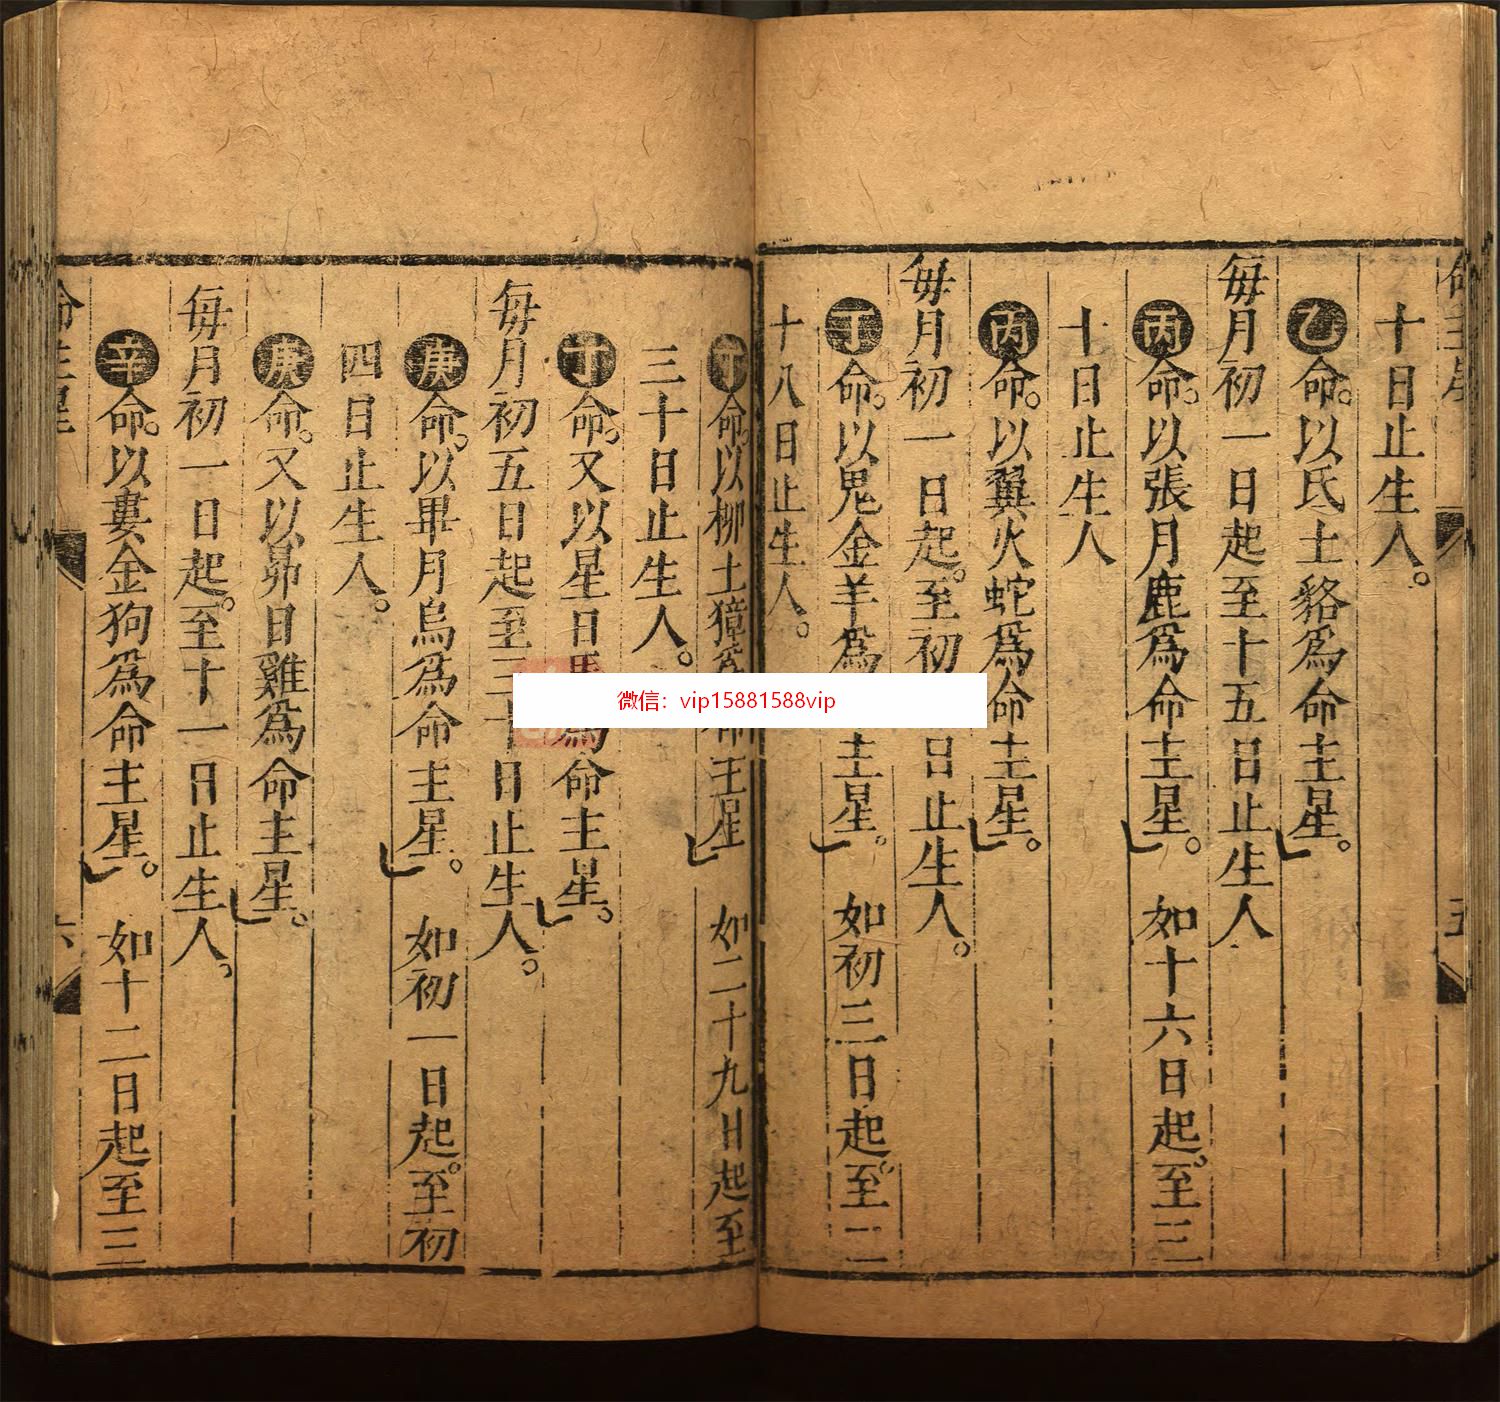 命主星 五
十日止生人。
乙命。以氐土貉爲命主星。
每月初一日起至十五日止生人
丙命。以張月鹿爲命主星。 如十六日起。至三
十日止生人
丙命。以翼火蛇爲命主星。
每月初一日起。至初 日止生人。
丁命。以鬼金羊爲 主星。 如初三日起。至二
十八日止生人。
丁命。以柳土獐爲命主星 如二十九日起至
三十日止生人。
丁命。又以星日馬爲命主星。
每月初五日起至三十日止生人。
庚命。以畢月烏爲命主星。 如初一日起。至初
四日止生人。
庚命。又以昴日雞爲命主星。
每月初一日起。至十一日止生人。
辛命。以婁金狗爲命主星。 如十二日起至三
命主星 六
微信：vip15881588vip